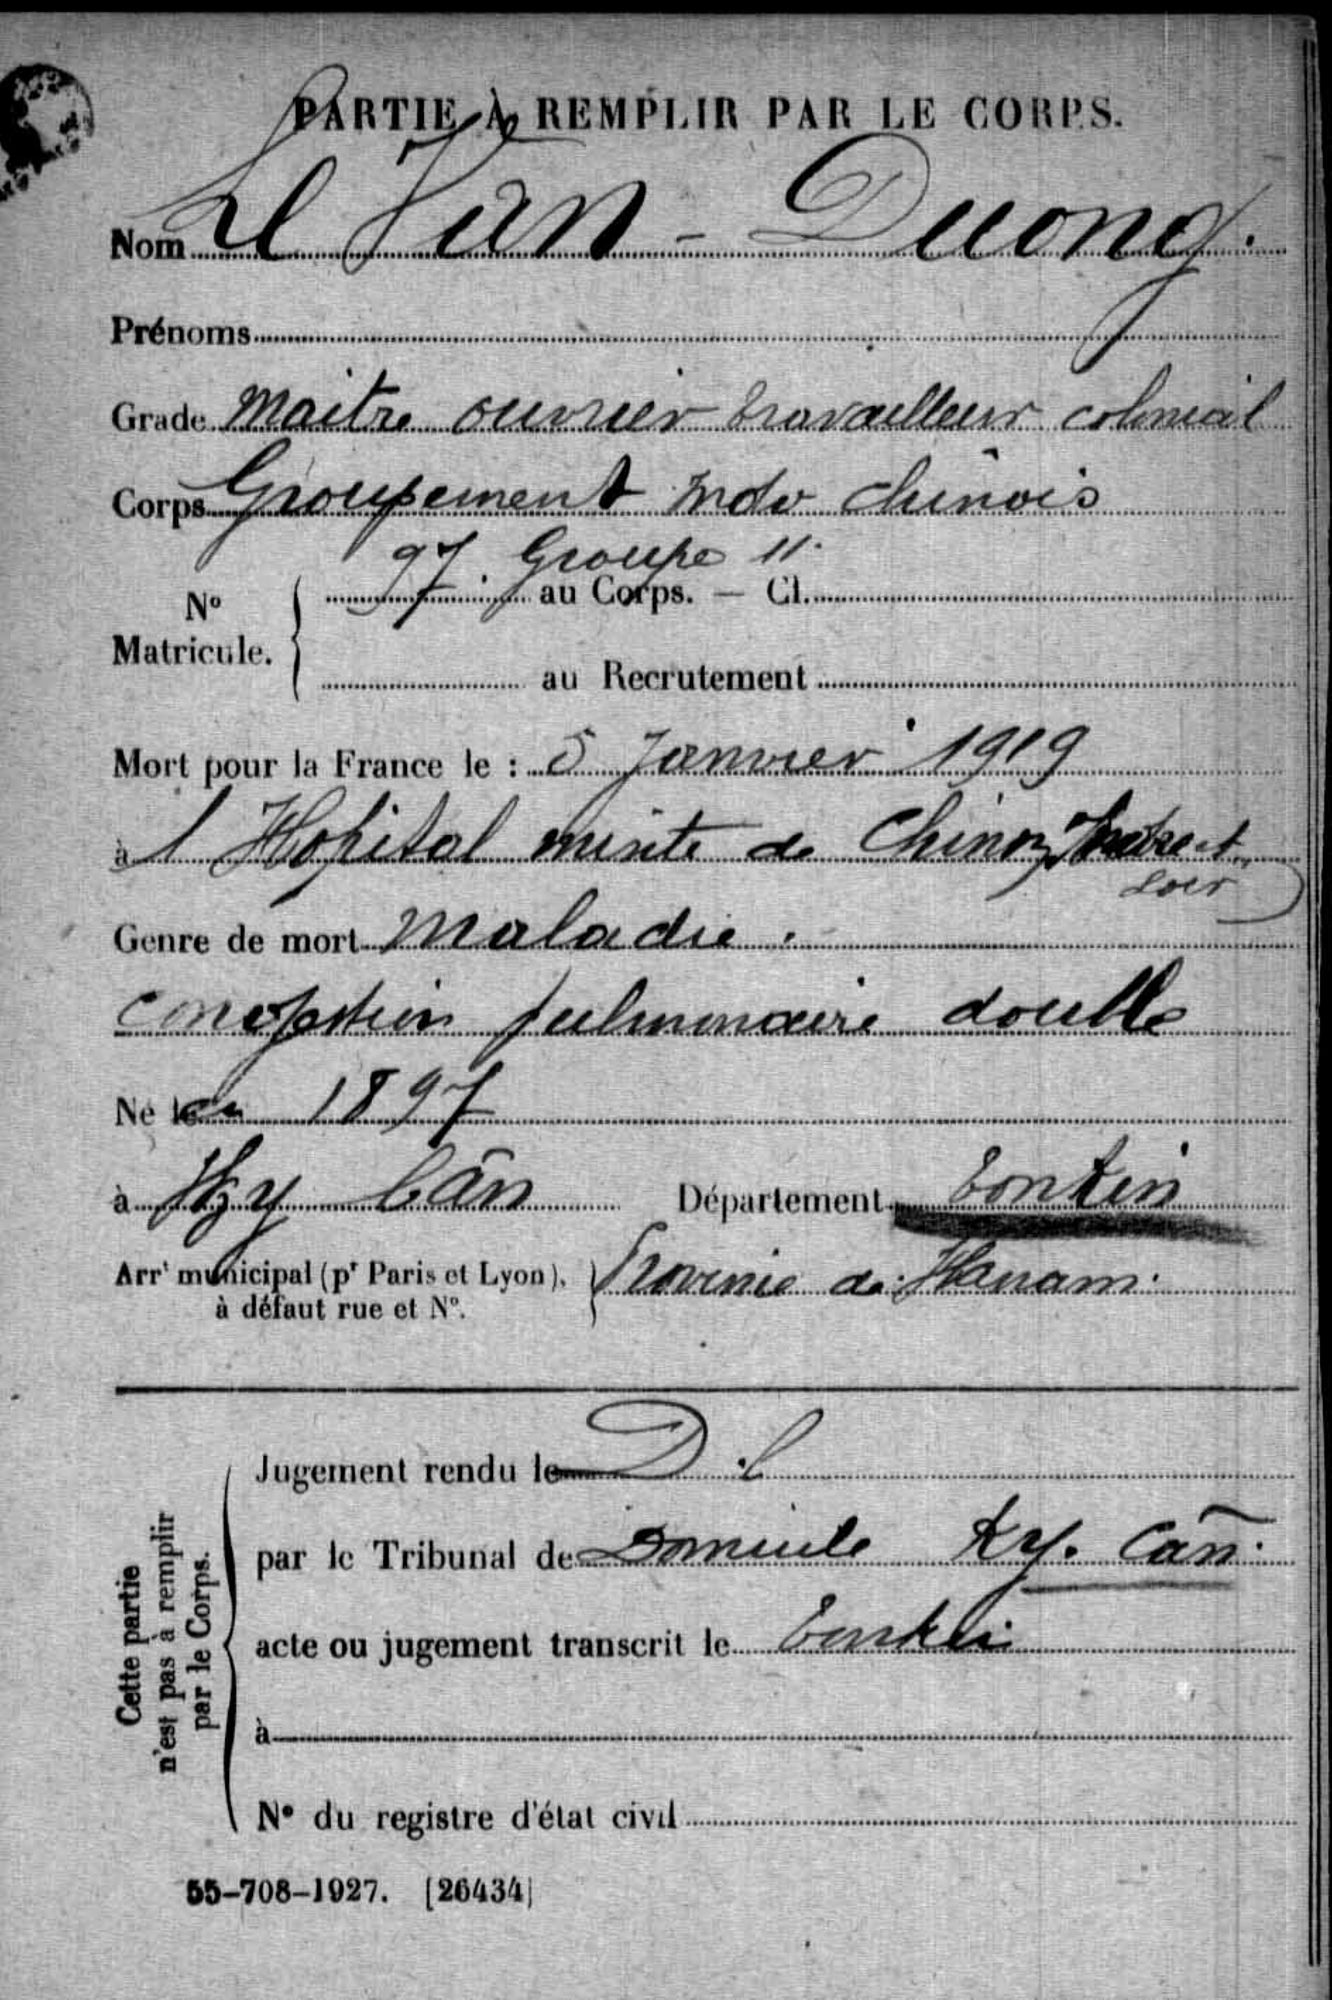 PARTIE À REMPLIR PAR LE CORPS.
Nom Le Van - Duong.
Prénoms
Grade Maitre ouvrier travailleur colonial
Corps Groupement Indo chinois
97. Groupe 11.
N° Matricule. au Corps. — Cl.
au Recrutement
Mort pour la France le : 5 Janvier 1919
à l Hopital mixte de Chinon Indre et
Loir
Genre de mort Maladie.
congestion pulmonaire double
Né le en 1897
à Ky Cân Département Tonkin
Arrt municipal (pr Paris et Lyon), Province de Hanam.
à défaut rue et N°.
Jugement rendu le D.l
par le Tribunal de Domicile Ky. Cân.
acte ou jugement transcrit le Tonkin
à
N° du registre d'état civil
Cette partie
n'est pas à remplir
par le Corps.
55-708-1927. [26434]